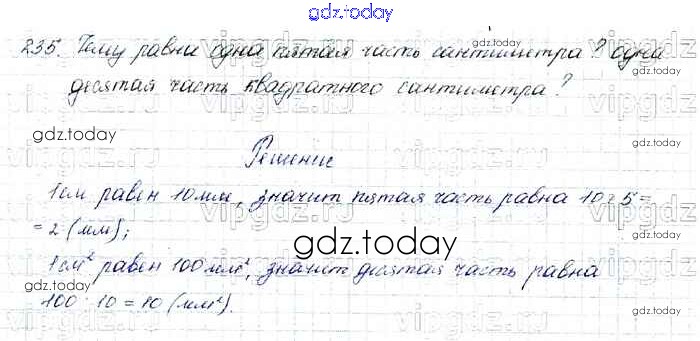 gdz.today
235. Чему равна одна пятая часть сантиметра? одна
десятая часть квадратного сантиметра?
gdz.today
vipgdz.ru
gdz.today
Решение
1 см равен 10 мм, значит пятая часть равна 10 : 5 =
= 2 (мм);
gdz.today
1 см² равен 100 мм², значит десятая часть равна
100 : 10 = 10 (мм²).
gdz.today
gdz.today